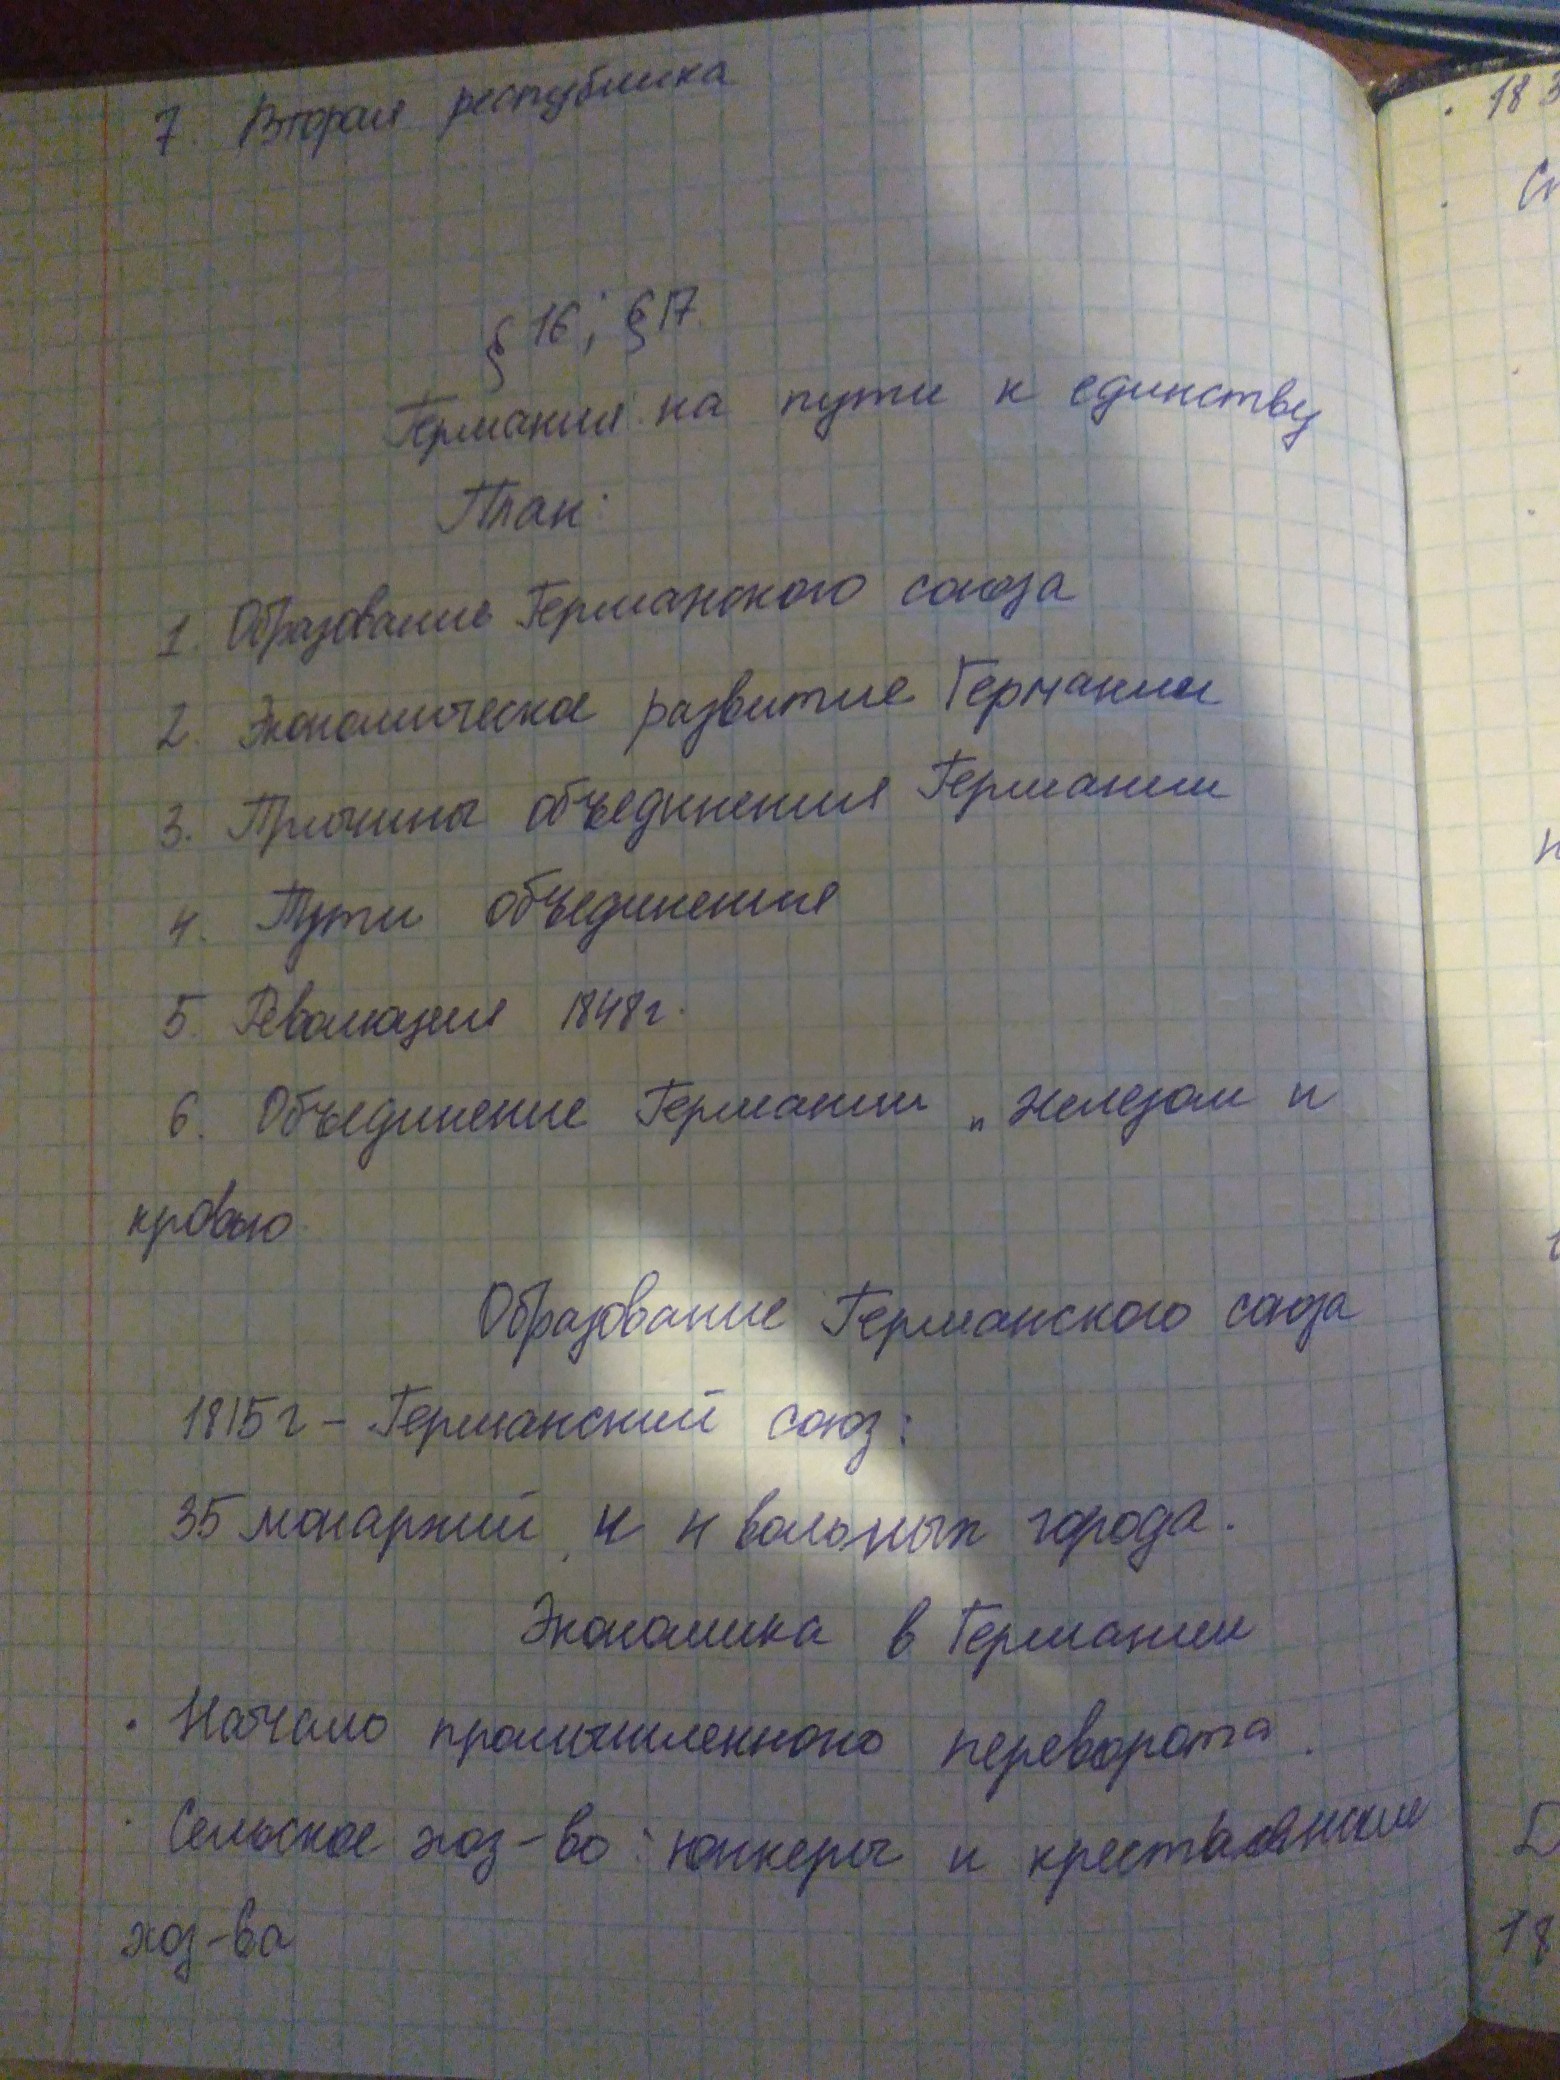 7. Вторая республика
§ 16; § 17.
Германия на пути к единству
План:
1. Образование Германского союза
2. Экономическое развитие Германии
3. Причины объединения Германии
4. Пути объединения
5. Революция 1848г.
6. Объединение Германии „железом и
кровью.
Образование Германского союза
1815г – Германский союз:
35 монархий, и 4 вольных города.
Экономика в Германии
· Начало промышленного переворота.
· Сельское хоз-во: юнкеры и крестьянские
хоз-ва
· 183
18